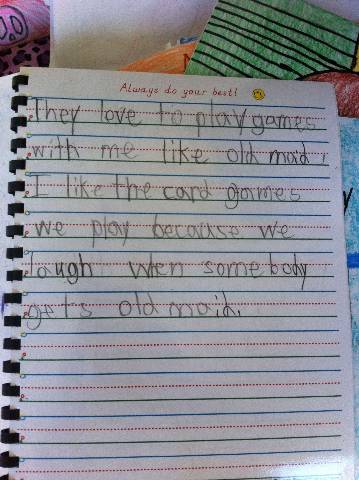 Always do your best!
They love to play games
with me like old maid,
I like the card games
we play because we
laugh when somebody
gets old maid.